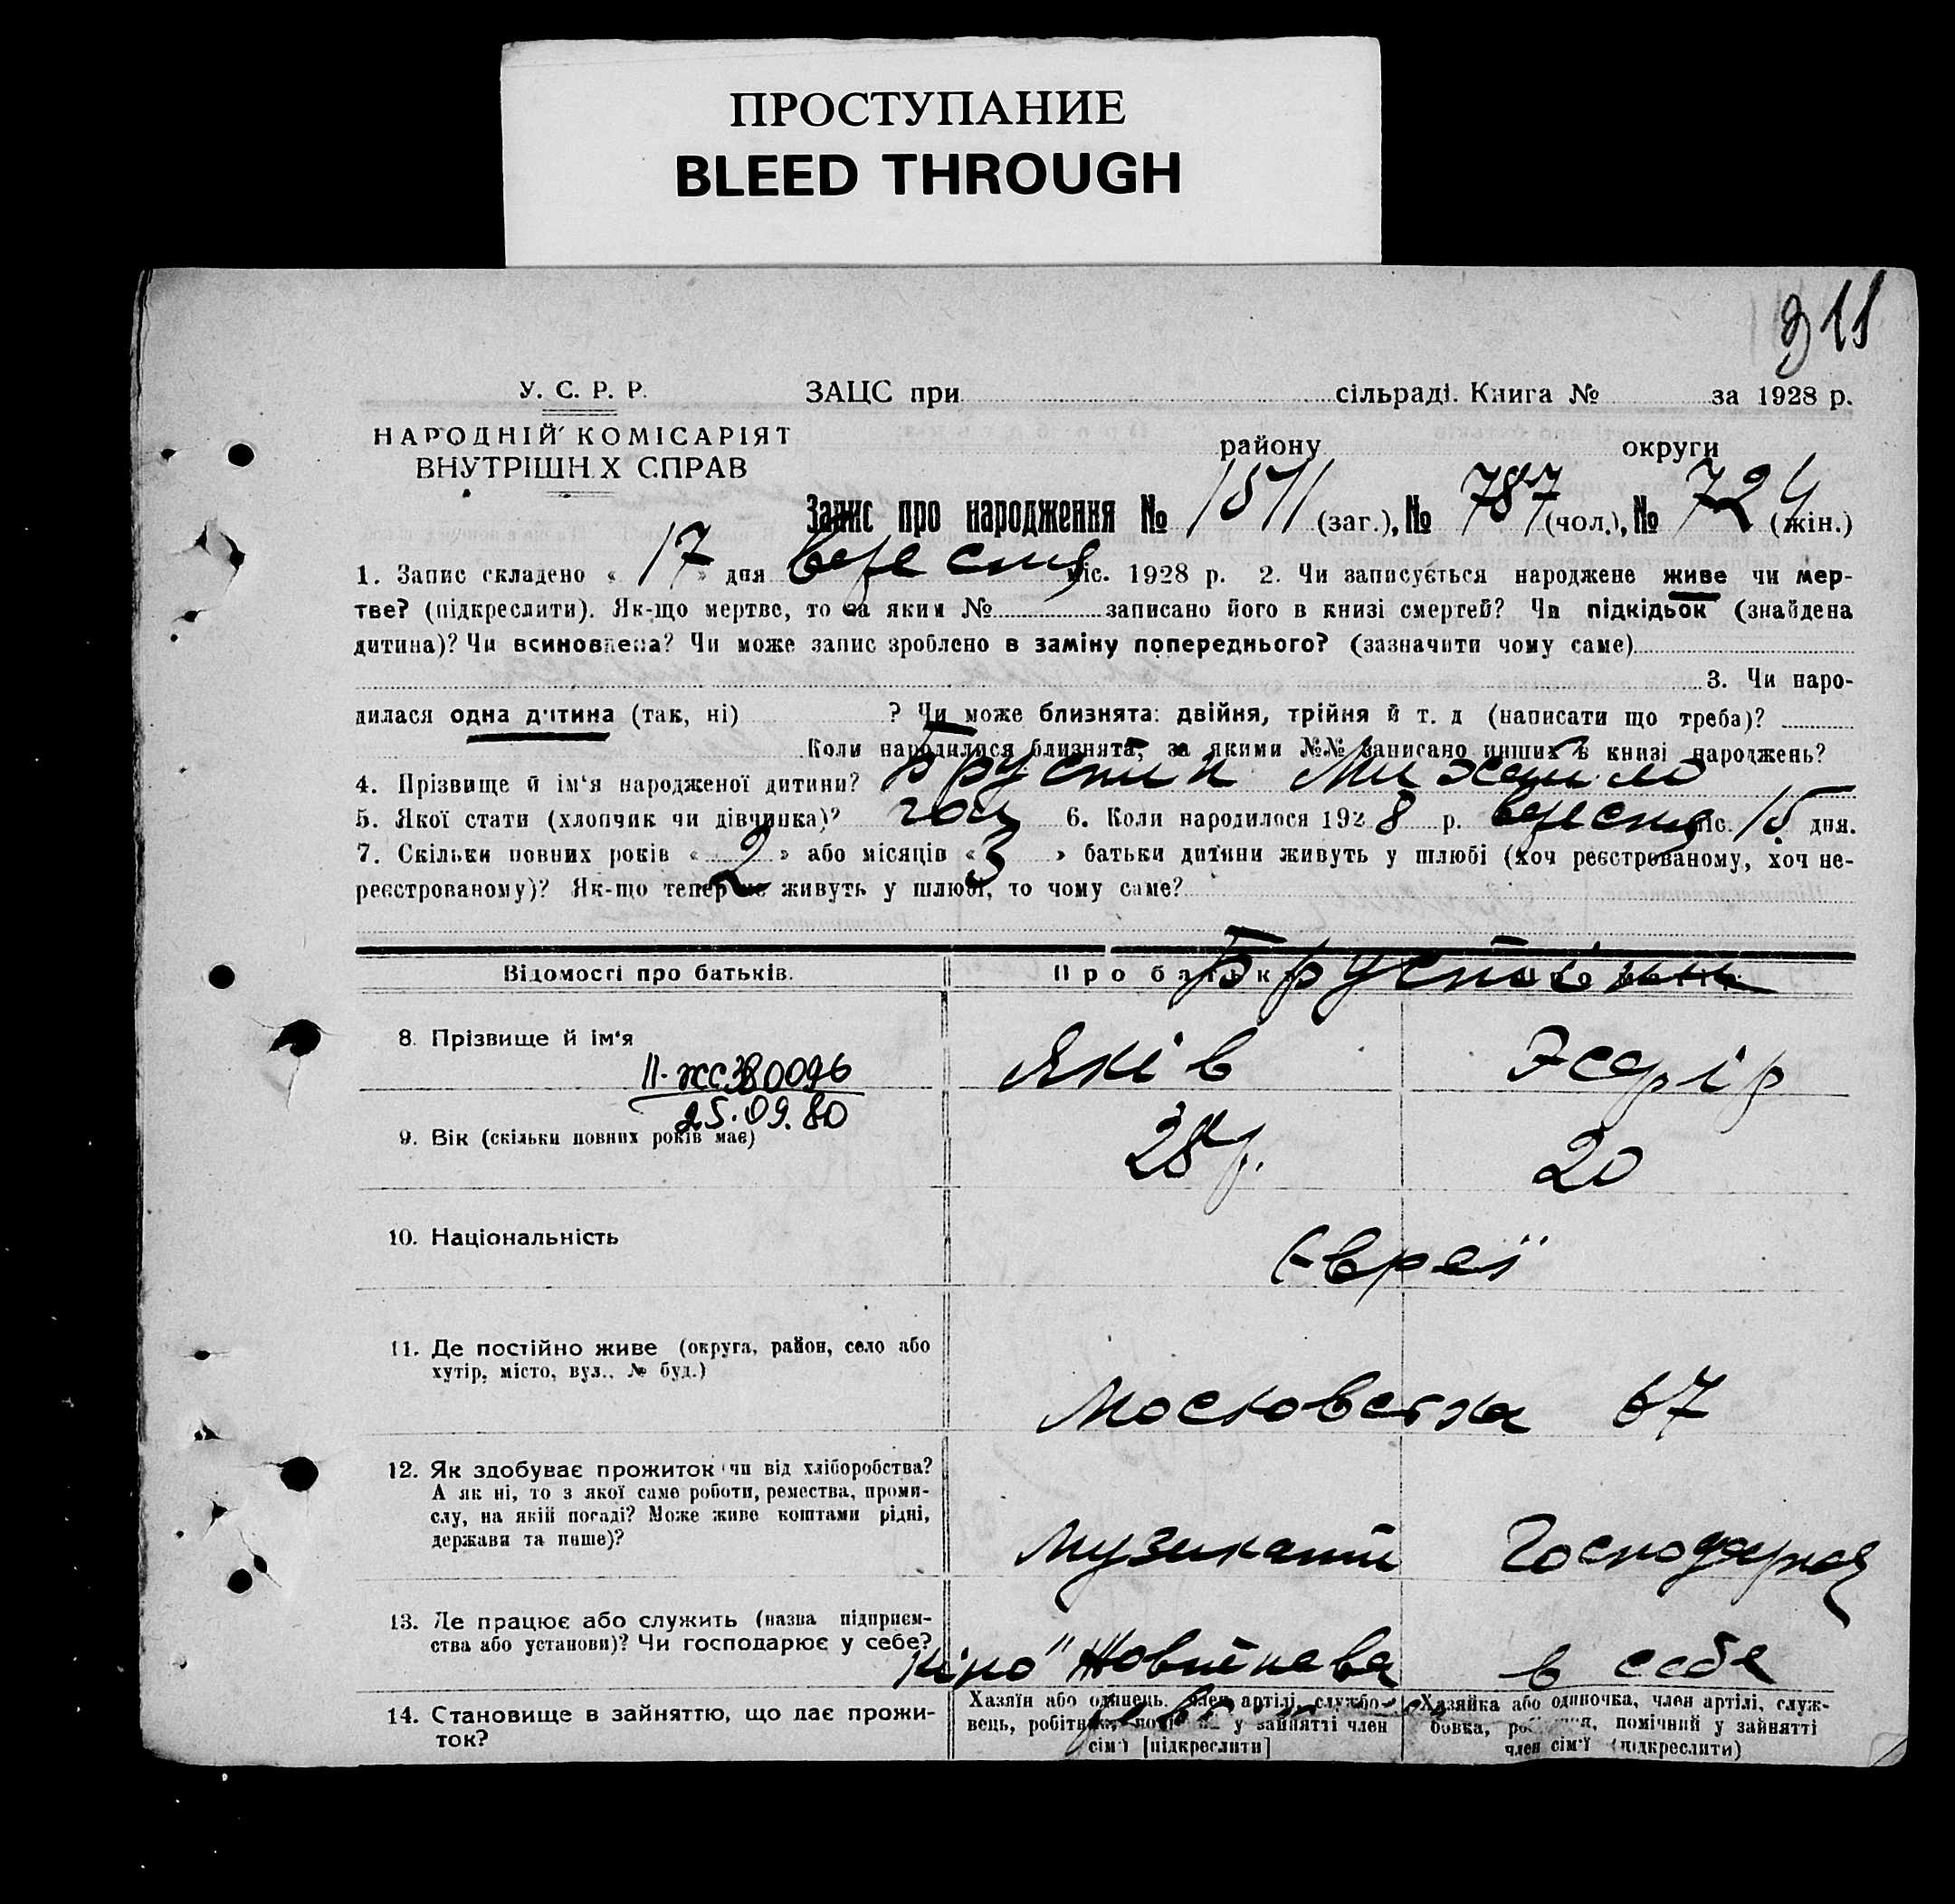 ПРОСТУПАНИЕ
BLEED THROUGH
911
У. С. Р. Р.
НАРОДНІЙ КОМІСАРІЯТ
ВНУТРІШН Х СПРАВ
ЗАЦС при сільраді. Книга № за 1928 р.
району округи
Запис про народження № 1511 (заг.), № 787 (чол.), № 724 (жін.)
1. Запис складено « 17 » дня вересня міс. 1928 р. 2. Чи записується народжене живе чи мер-
тве? (підкреслити). Як-що мертве, то за яким № записано його в книзі смертей? Чи підкідьок (знайдена
дитина)? Чи всиновлена? Чи може запис зроблено в заміну попереднього? (зазначити чому саме)
3. Чи наро-
дилася одна дитина (так, ні) ? Чи може близнята: двійня, трійня й т. д (написати що треба)?
Коли народилися близнята, за якими №№ записано инших в книзі народжень?
4. Прізвище й ім'я народженої дитини? Михайло
5. Якої стати (хлопчик чи дівчинка)? чол 6. Коли народилося 1928 р. вересня міс. 15 дня.
7. Скільки повних років « 2 » або місяців « 3 » батьки дитини живуть у шлюбі (хоч реєстрованому, хоч не-
реєстрованому)? Як-що тепер не живуть у шлюбі, то чому саме?
Відомості про батьків. Про батька Про матір
8. Прізвище й ім'я Яків Эсфір
II-ЖС380096
25.09.80
9. Вік (скільки повних років має) 28 р. 20
10. Національність Євреї
11. Де постійно живе (округа, район, село або
хутір, місто, вул., № буд.)
Московська 67
12. Як здобуває прожиток чи від хліборобства?
А як ні, то з якої саме роботи, ремества, проми-
слу, на якій посаді? Може живе коштами рідні,
держави та инше)?
Музикант Господарка
13. Де працює або служить (назва підприєм-
ства або установи)? Чи господарює у себе?
кіно "Жовтнева в себе
14. Становище в зайняттю, що дає прожи-
ток?
Хазяїн або одинець, член артілі, службо-
вець, робітник, у зайнятті член
сім'ї [підкреслити]
Хазяйка або одиночка, член артілі, служ-
бовка, помічний у зайнятті
член сім'ї (підкреслити)